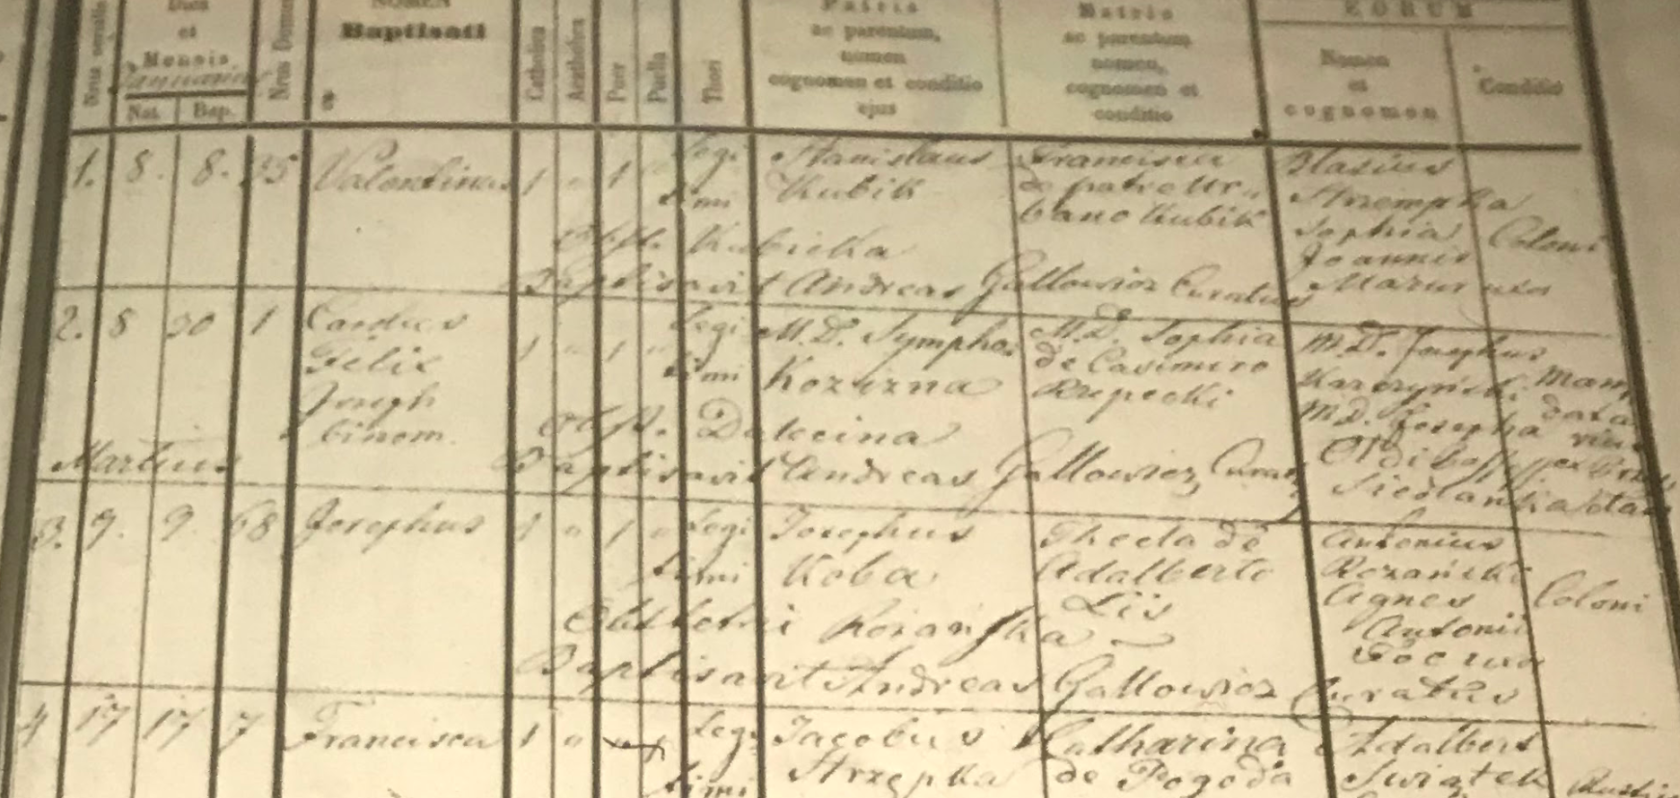 Nrus serialis
Dies
et
Mensis
Januarius
Nat. Bap.
Nrus Domus
NOMEN
Baptisati
Catholica
Acatholica
Puer
Puella
Thori
Patris
ac parentum,
nomen
cognomen et conditio
ejus
Matris
ac parentum
nomen,
cognomen et
conditio
EORUM
Nomen
et
cognomen
Conditio
1. 8. 8. 35 Valentinus 1 " 1 Legi Stanislaus Francisca Blasius
timi Kubik de patre Ur- Strzempka
bano Kubik Sophia Coloni
Obst. Kubicka Joannis
Baptisavit Andreas Gallowicz Curatus Mazur uxor
2. 8 20 1 Carolus Legi M.D. Sympho. M.D. Sophia M.D. Josephus
Felix 1 " 1 " timi Kozizna de Casimiro
Joseph Rupecki M.D. Josepha
binom. Obst. Dulecina
Martius Baptisavit Andreas Gallowicz Curat
3. 9. 9. 68 Josephus 1 " 1 " Legi Josephus Thecla de Antonius
timi Koba Adalberto Rozański
Lis Agnes Coloni
Obstetri Rozanska Antonii
Baptisavit Andreas Gallowicz Curatus
4 17 17 7 Francisca 1 " Legi Jacobus Catharina Adalbert
timi Strzępka de Pogoda Swiątek